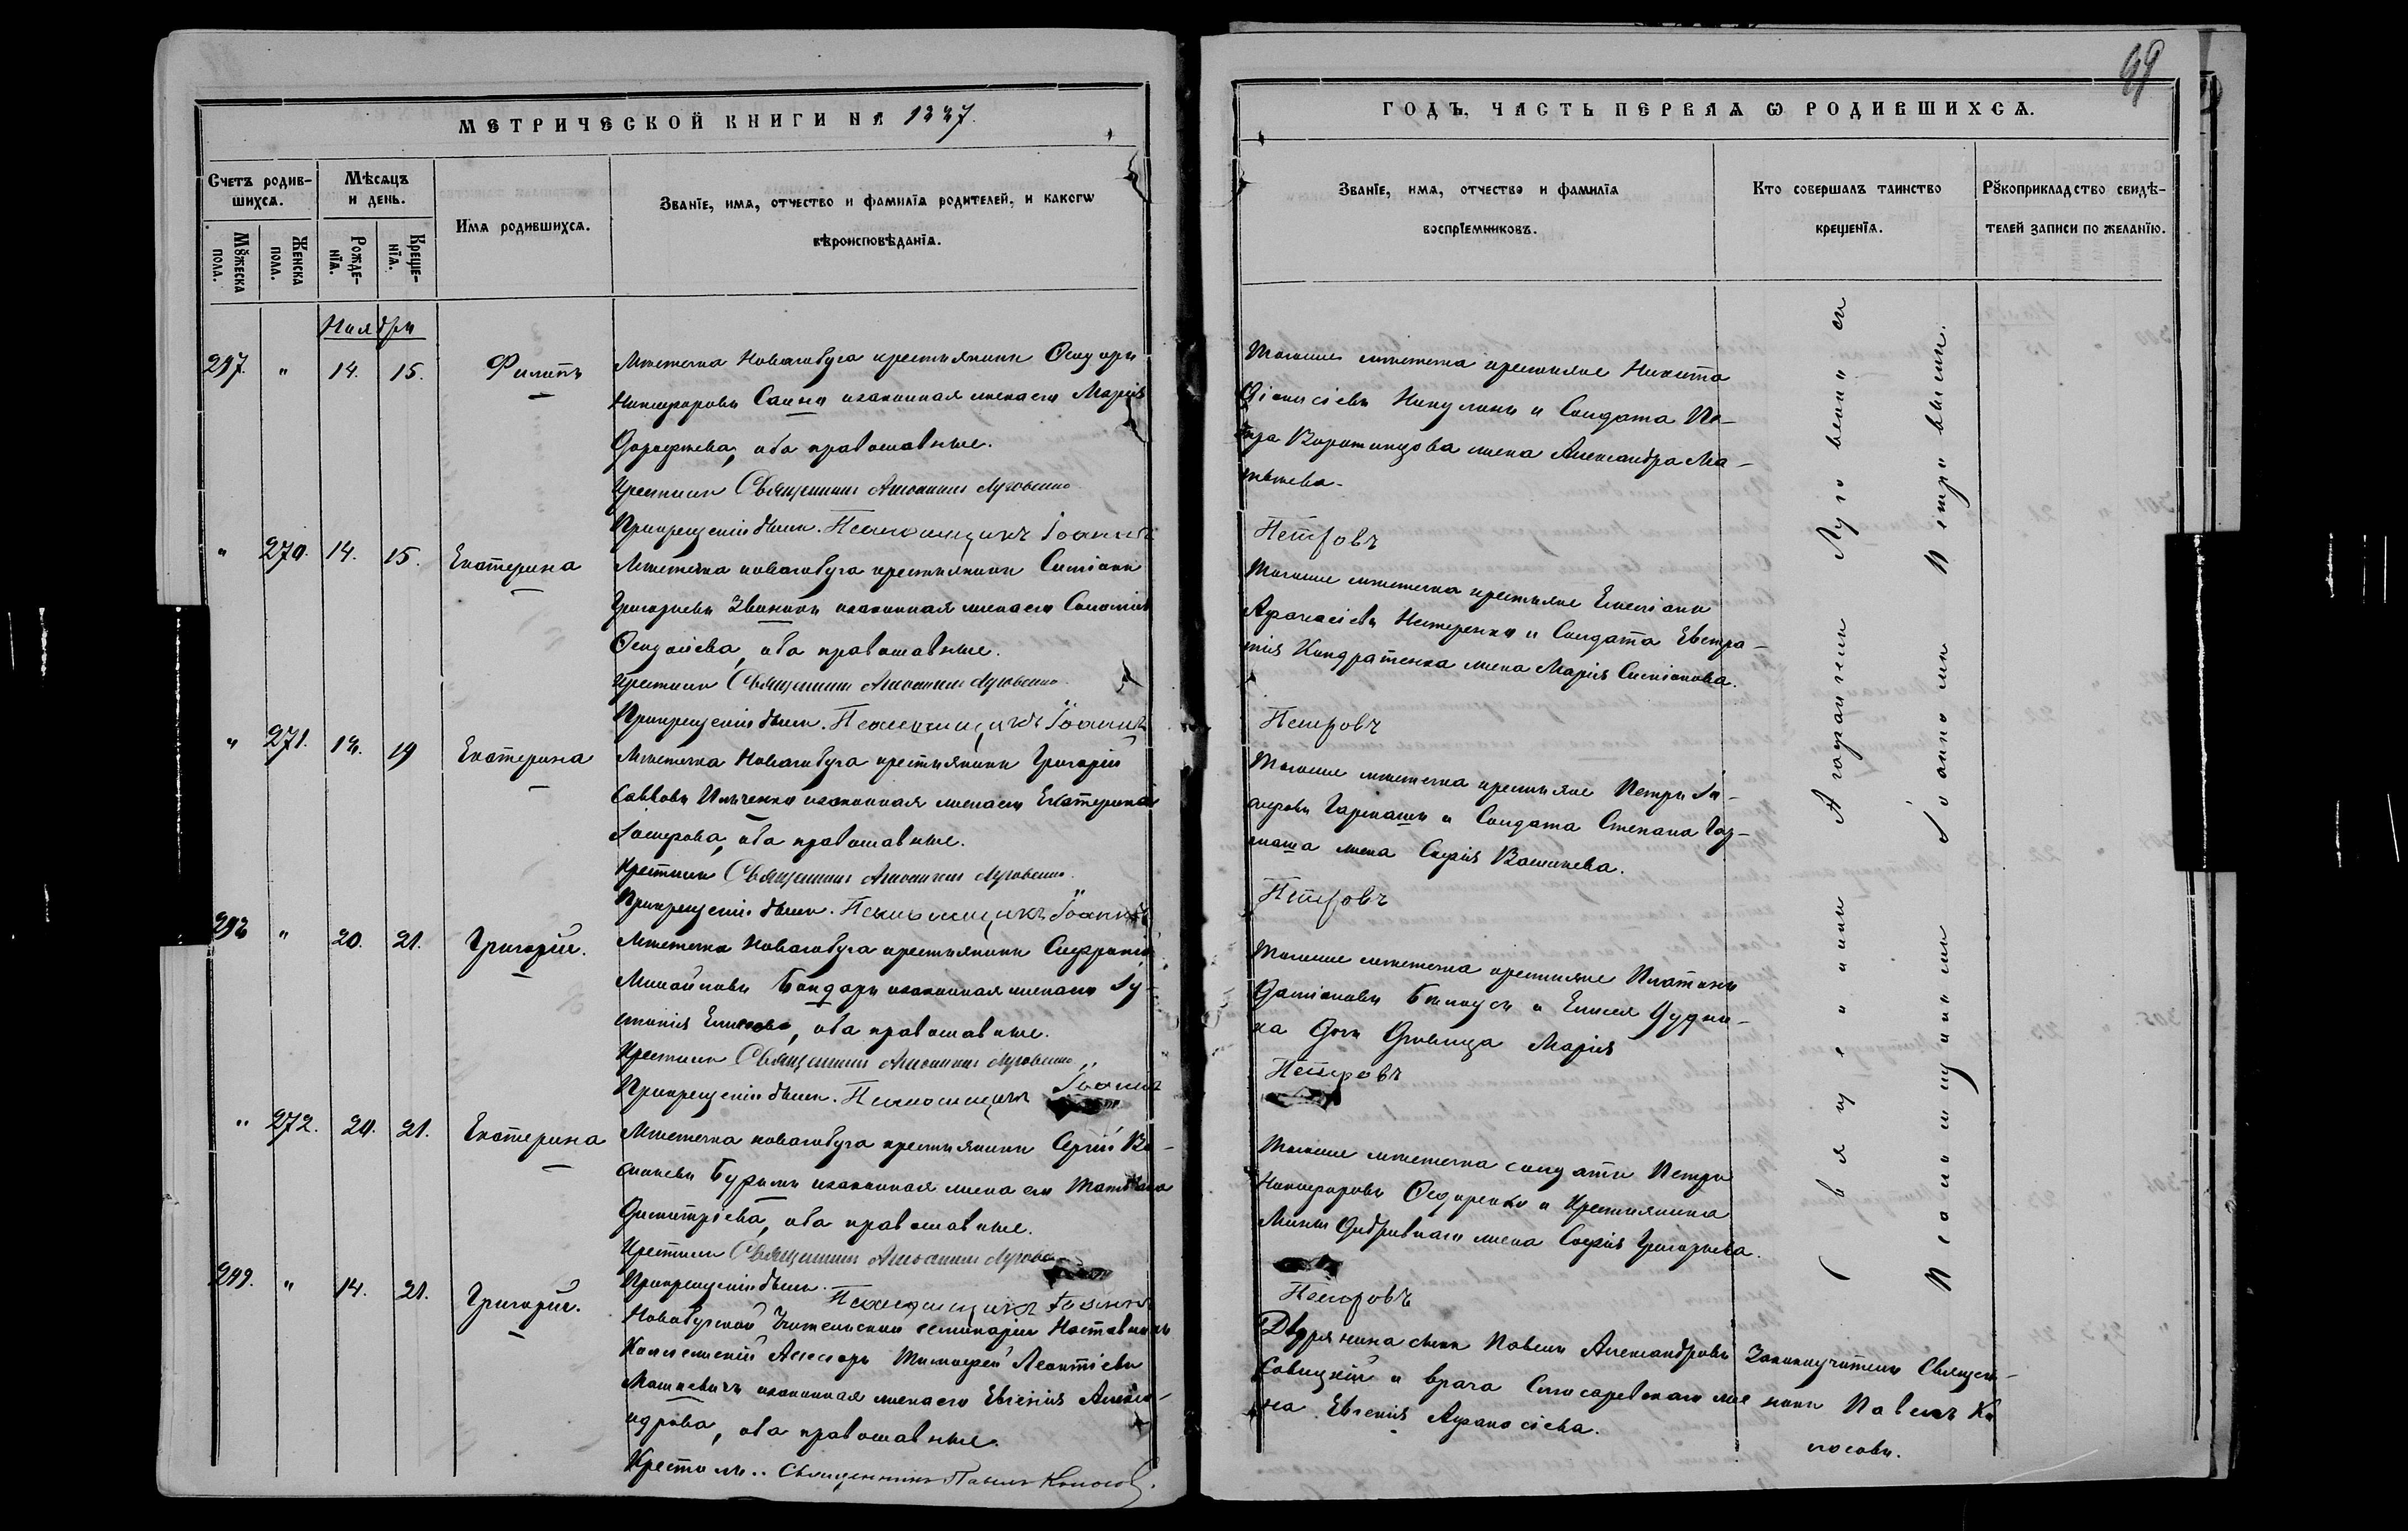 МЕТРИЧЕСКОЙ КНИГИ НА 1887.
Счетъ родив-
шихсѧ.
Мѣсѧцъ
и день.
Имѧ родившихсѧ.
Званїе, имѧ, отчество и фамилїѧ родителей, и какогѡ
вѣроисповѣданїѧ.
Мꙋжеска
пола.
Женска
пола.
Рожде-
нїѧ.
Креще-
нїѧ.
Ноября
297. " 14. 15. Филиппъ
Мѣстечка Новагобуга крестьянинъ Ѳеодоръ
Никифоровъ Саенко и законная жена его Марія
Дорофѣева, оба православные.
Крестилъ Священникъ Агафангелъ Луговенко
При крещеніи былъ. Псаломщикъ Іоаннъ
" 270. 14. 15. Екатерина
Мѣстечка Новагобуга крестьянинъ Симеонъ
Григорьевъ и законная жена его Соломія
Ѳеодосіева, оба православные.
Крестилъ Священникъ Агафангелъ Луговенко
При крещеніи былъ. Псаломщикъ Іоаннъ
" 271. 18. 19 Екатерина
Мѣстечка Новагобуга крестьянинъ Григорій
Саввовъ Ильченко и законная жена его Екатерина
Іосифова, оба православные.
Крестилъ Священникъ Агафангелъ Луговенко
При крещеніи былъ. Псаломщикъ Іоаннъ
298 " 20. 21. Григорій.
Мѣстечка Новагобуга крестьянинъ Софроній
Михайловъ Бондарь и законная жена его Іу-
стинія, оба православные.
Крестилъ Священникъ Агафангелъ Луговенко
При крещеніи былъ. Псаломщикъ Іоаннъ
" 272. 20. 21. Екатерина
Мѣстечка Новагобуга крестьянинъ Сергій Ва-
силіевъ и законная жена его Татіана
Димитріева, оба православные.
Крестилъ Священникъ Агафангелъ Луговенко
При крещеніи былъ. Псаломщикъ Іоаннъ
299. " 14. 21. Григорій.
Новобугской Учительской семинаріи Наставникъ
Коллежскій Асессоръ Тимофей Леонтіевъ
Мошкевичъ и законная жена его Евгенія Алекса-
ндрова, оба православные.
Крестилъ.. Священникъ Павелъ Колосовъ.
99
ГОДЪ, ЧАСТЬ ПЕРВАѦ Ѡ РОДИВШИХСѦ.
Званїе, имѧ, отчество и фамилїѧ
воспрїемниковъ.
Кто совершалъ таинство
крещенїѧ.
Рꙋкоприкладство свидѣ-
телей записи по желанїю.
Тогоже мѣстечка крестьяне Никита
Діонисіевъ Никулинъ и Солдата Пе-
тра жена Александра Ма-
твѣева.
Петровъ
Тогоже мѣстечка крестьяне Емеліанъ
Афанасіевъ Нестеренко и Солдата Евстра-
тія Кондратенка жена Марія Симеонова.
Петровъ
Тогоже мѣстечка крестьяне Петръ Іо-
сифовъ Гармашъ и Солдата Степана Гар-
маша жена Софія Василіева.
Петровъ
Тогоже мѣстечка крестьяне Платонъ
Даміановъ Бѣлоусъ и Елисея Дудни-
ка дочь дѣвица Марія
Петровъ
Тогоже мѣстечка солдатъ Петръ
Никифоровъ Ѳедоренко и Крестьянина
жена Софія Григорьева.
Петровъ
Дворянина сынъ Павелъ Александровъ
Савицкій и врача Слюсаревскаго же-
на Евгенія Афанасіева.
Священникъ Агафангелъ Луговенко и
Псаломщикъ Іоаннъ Петровъ.
Законоучитель Священ-
никъ Павелъ Ко-
лосовъ.